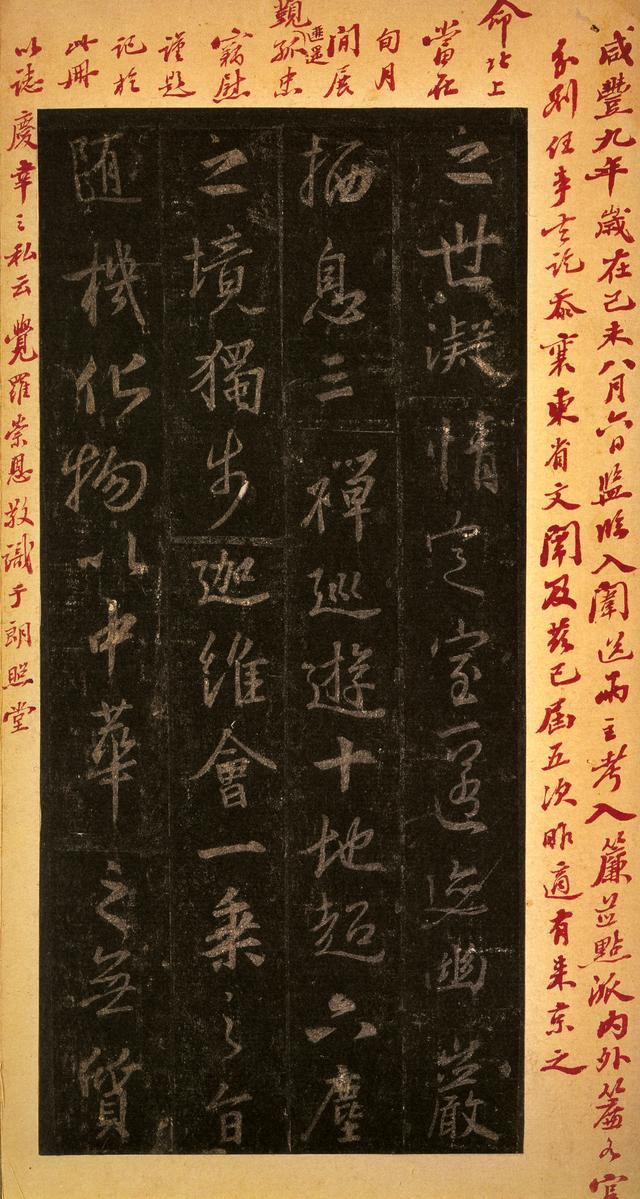 咸豐九年歲在己未八月六日監臨入闈送兩主考入簾並點派內外簾各官
分別任事訖忝襄東省文闈及茲已屆五次昨適有來京之
命北上
當在
旬月
間展
覲匪遥孤忠
竊慰
謹題
記於
此冊
以誌慶幸之私云覺羅崇恩敬識于朗照堂
之世凝情定室匿迹幽巖
栖息三禪巡遊十地超六塵
之境獨步迦維會一乘之旨
隨機化物以中華之無質